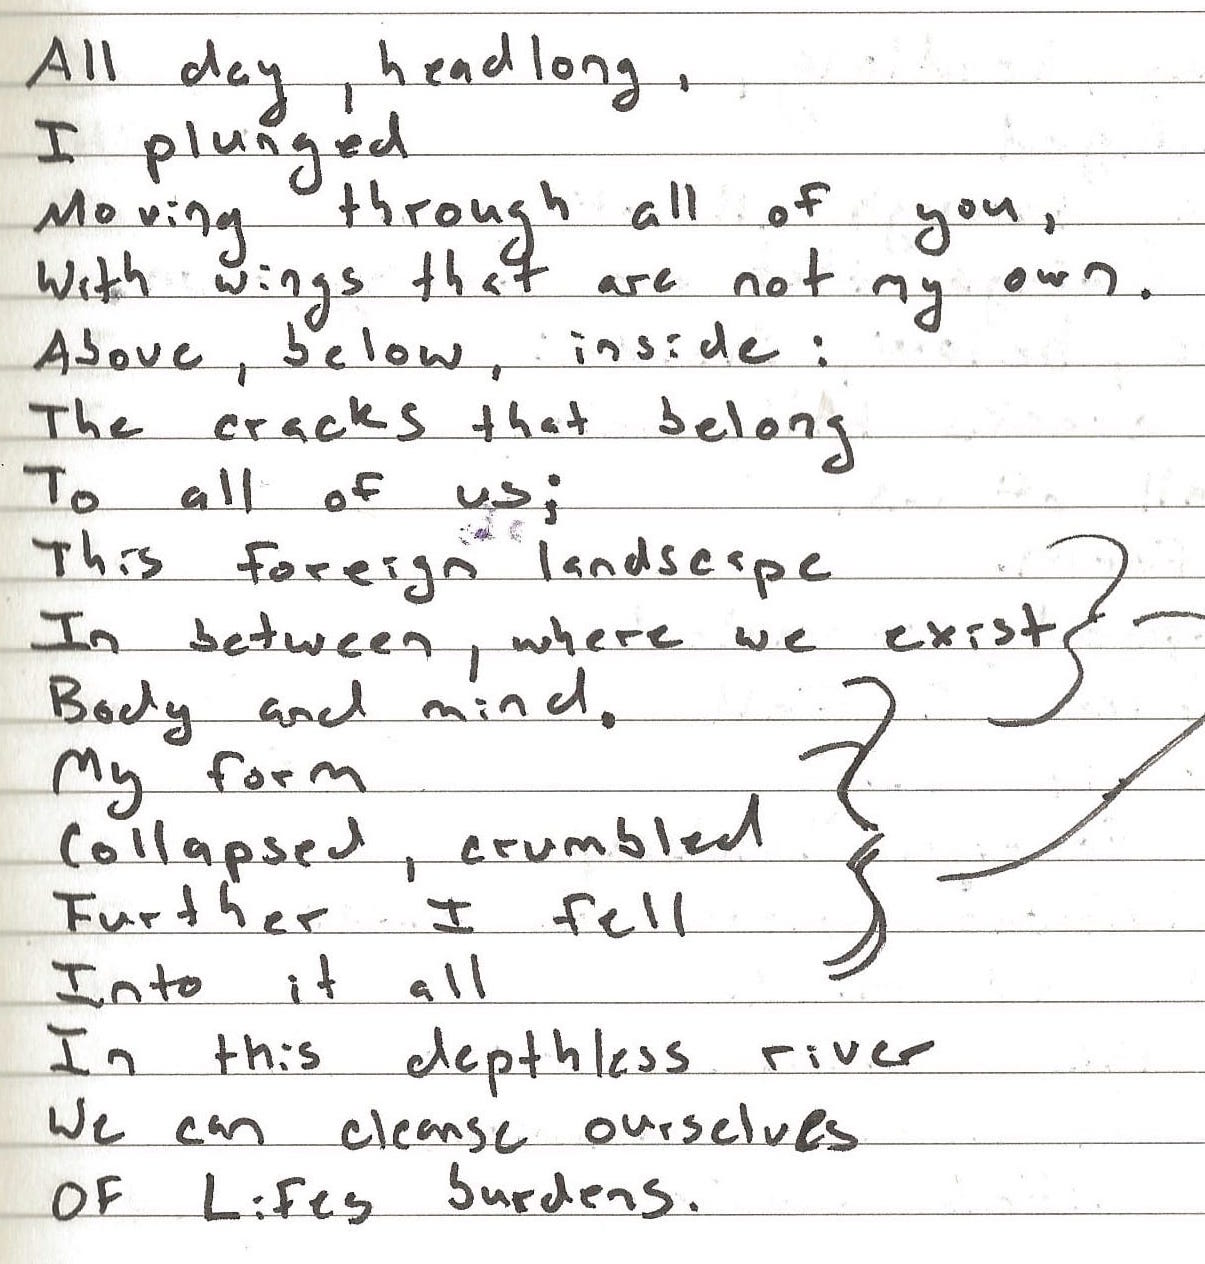 All day, headlong,
I plunged
Moving through all of you,
With wings that are not my own.
Above, below, inside:
The cracks that belong
To all of us;
This foreign landscape
In between, where we exist
Body and mind.
My form
Collapsed, crumbled
Further I fell
Into it all
In this depthless river
We can cleanse ourselves
Of Lifes burdens.